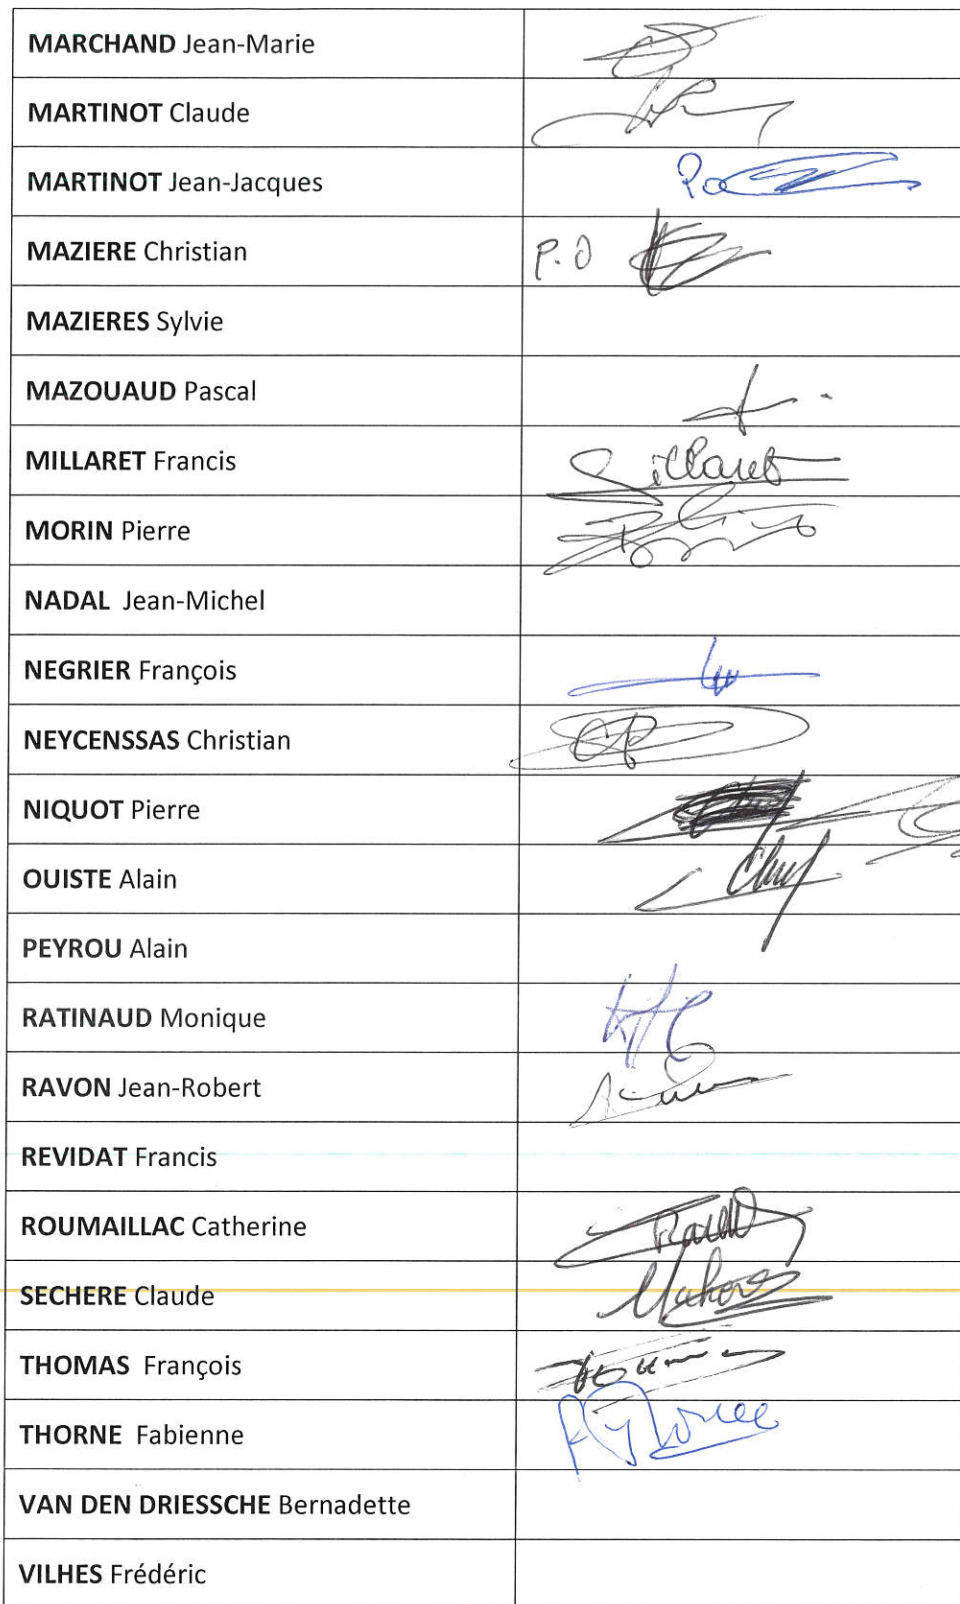 MARCHAND Jean-Marie
MARTINOT Claude
MARTINOT Jean-Jacques
MAZIERE Christian P.O
MAZIERES Sylvie
MAZOUAUD Pascal
MILLARET Francis
MORIN Pierre
NADAL Jean-Michel
NEGRIER François
NEYCENSSAS Christian
NIQUOT Pierre
OUISTE Alain
PEYROU Alain
RATINAUD Monique
RAVON Jean-Robert
REVIDAT Francis
ROUMAILLAC Catherine
SECHERE Claude
THOMAS François
THORNE Fabienne
VAN DEN DRIESSCHE Bernadette
VILHES Frédéric